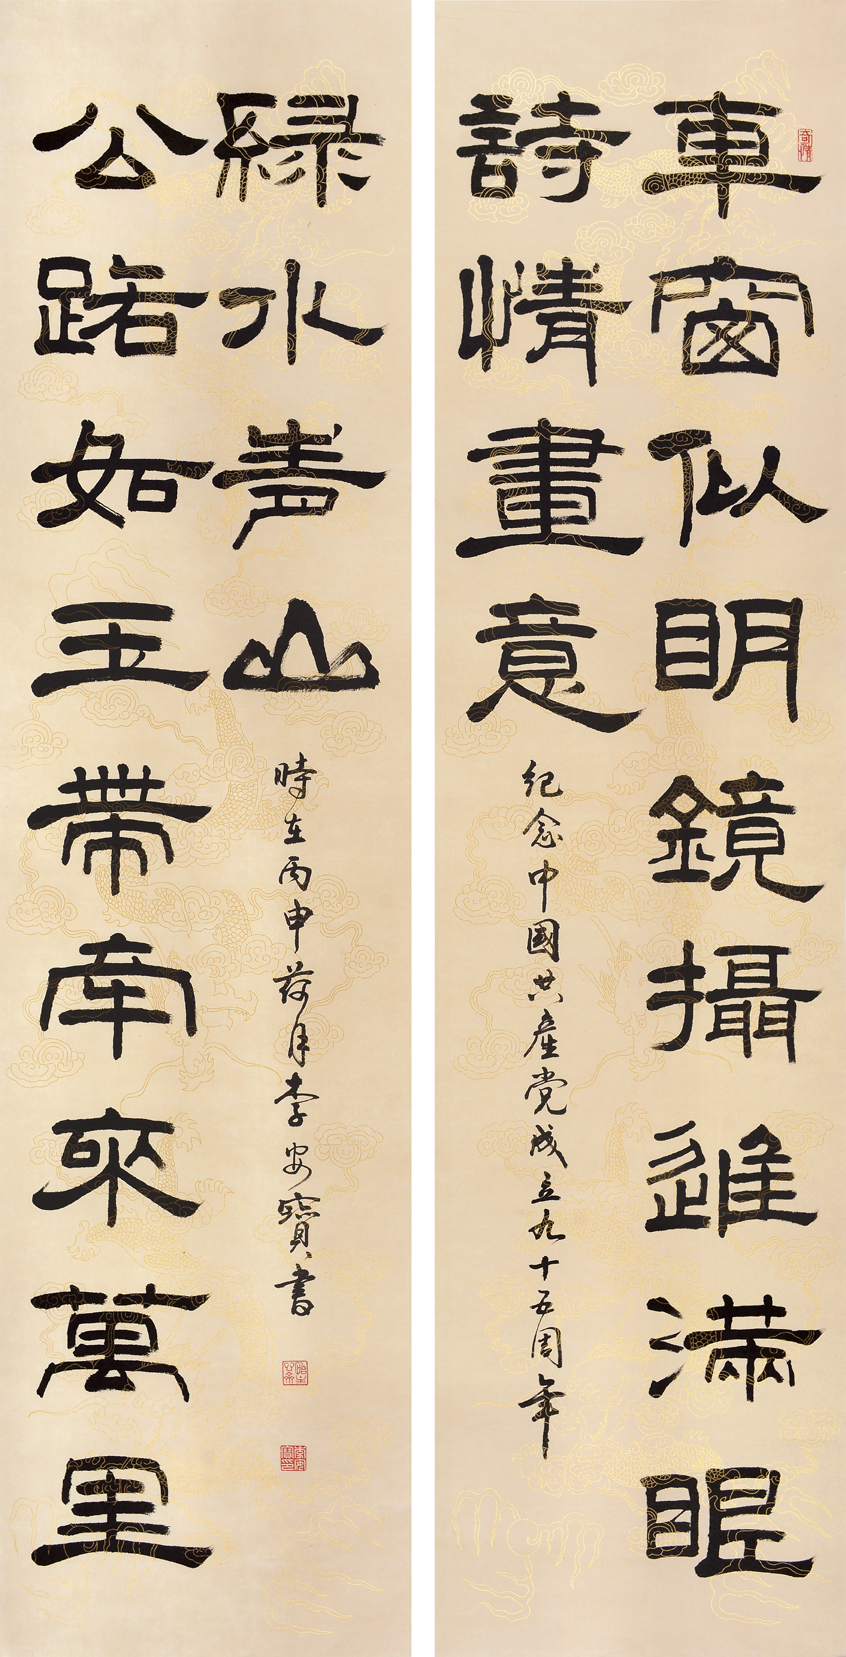 車窗似眀鏡攝進滿眼
詩情畫意
紀念中國共產党成立九十五周年
公路如玉帶牽來萬里
緑水青山
時在丙申荷月李安寶書